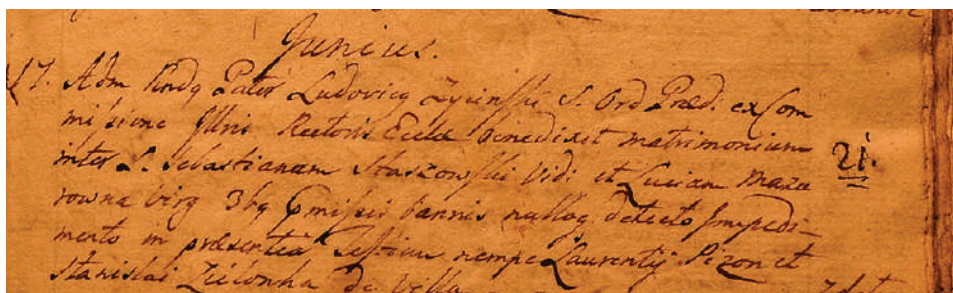 Junius.
17. Adm Rndq Pater Ludovicq S. Ord Præd: ex Com
misione Illris Rectoris Eccle benedixit matrimonium
inter S. Sebastianam Staszowski Vid: et Lucian Mazu
rowna virg 3bq pmissis bannis nulloq detecto Impedi-
mento in præsentia Testium nempe Laurentij Pizon et
Stanislai Zielonka de Villa
21.